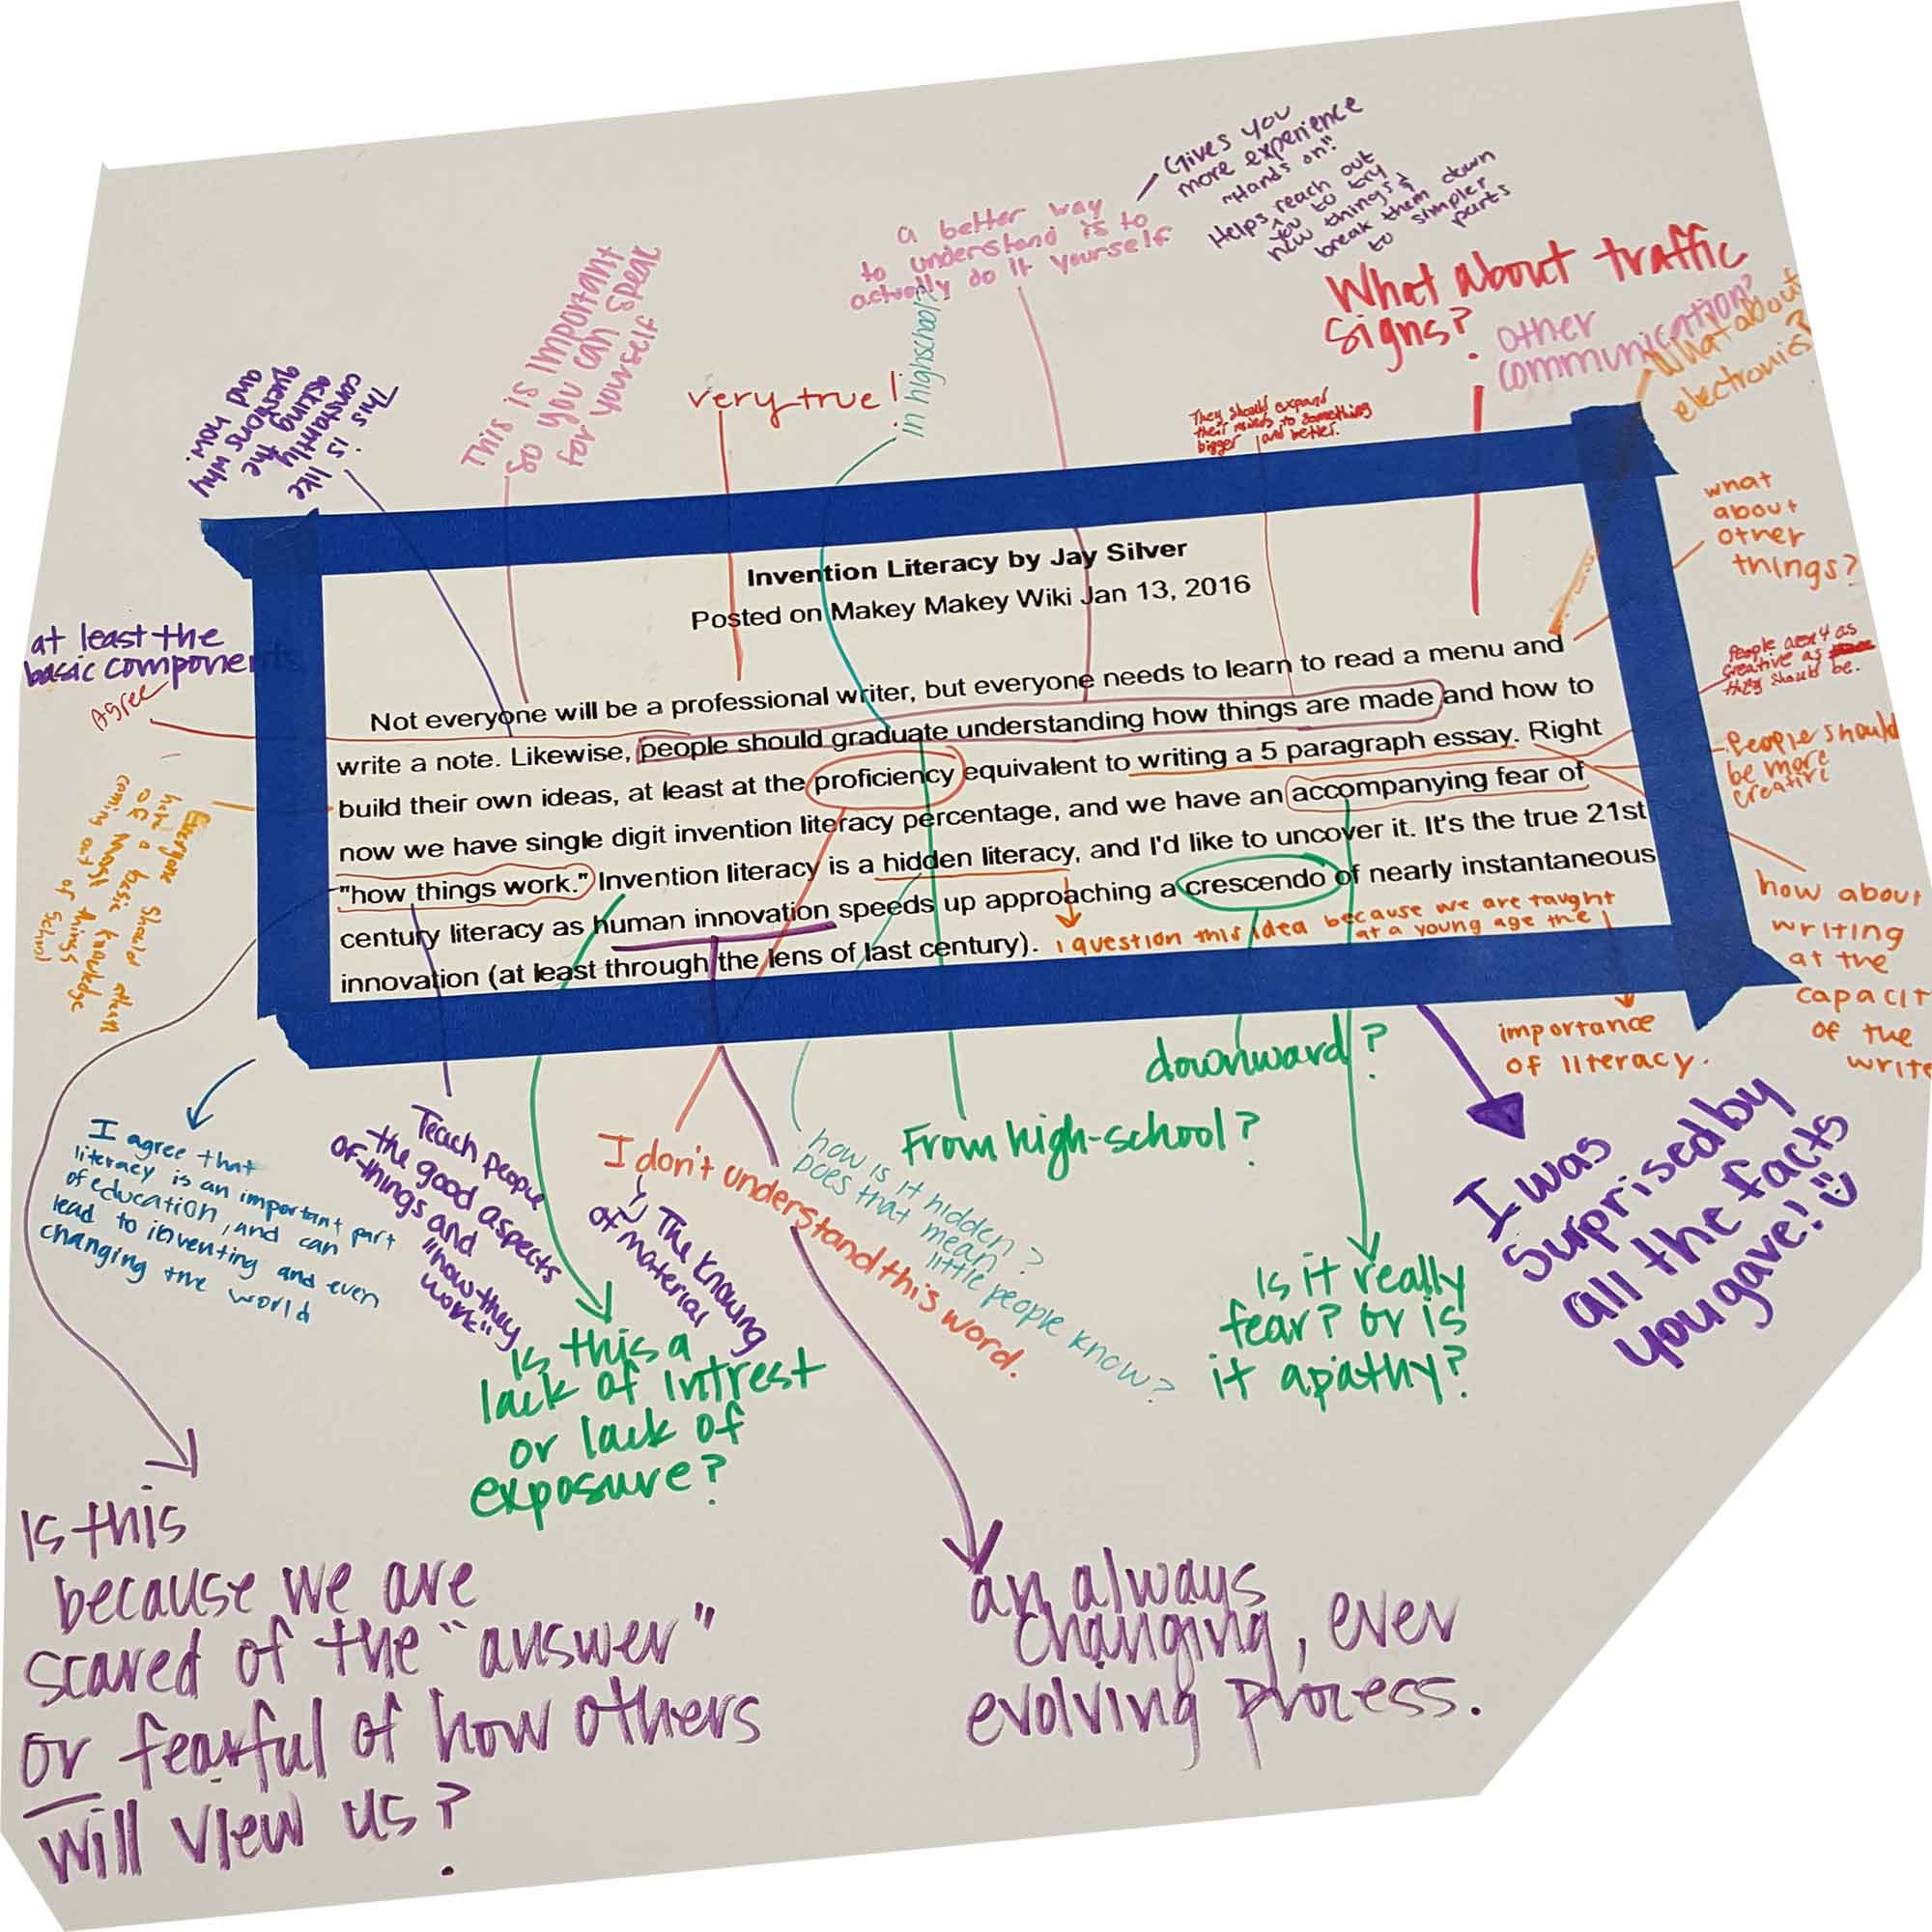 Gives you
more experience
"Hands on"
Helps reach out
you to try
new things &
break them down
to simpler
parts
a better way
to understand is to
actually do it yourself
This is important
so you can speak
for yourself
What about traffic
signs?
other
communication?
What about
electronics?
very true!
in highschool?
This is like
constantly
asking the
questions why
and how.
They should expand
their minds to something
bigger and better.
what
about
other
things?
Invention Literacy by Jay Silver
Posted on Makey Makey Wiki Jan 13, 2016
Not everyone will be a professional writer, but everyone needs to learn to read a menu and
write a note. Likewise, people should graduate understanding how things are made and how to
build their own ideas, at least at the proficiency equivalent to writing a 5 paragraph essay. Right
now we have single digit invention literacy percentage, and we have an accompanying fear of
"how things work." Invention literacy is a hidden literacy, and I'd like to uncover it. It's the true 21st
century literacy as human innovation speeds up approaching a crescendo of nearly instantaneous
innovation (at least through the lens of last century).
i question this idea because we are taught
at a young age the
importance
of literacy.
at least the
basic components
Agree
Everyone should
have a basic knowledge
of things
coming out of school
People aren't as
creative as
they should be.
People should
be more
creative
how about
writing
at the
capacit
of the
write
downward?
From high-school?
I agree that
literacy is an important part
of education, and can
lead to inventing and even
changing the world
Teach people
the good aspects
of things and
"how they
work"
I don't understand this word.
The knowing
of material
how is it hidden?
Does that mean
little people know?
I was
surprised by
all the facts
you gave!
Is this a
lack of intrest
or lack of
exposure?
Is it really
fear? or is
it apathy?
Is this
because we are
scared of the "answer"
or fearful of how others
will view us?
an always
changing, ever
evolving process.